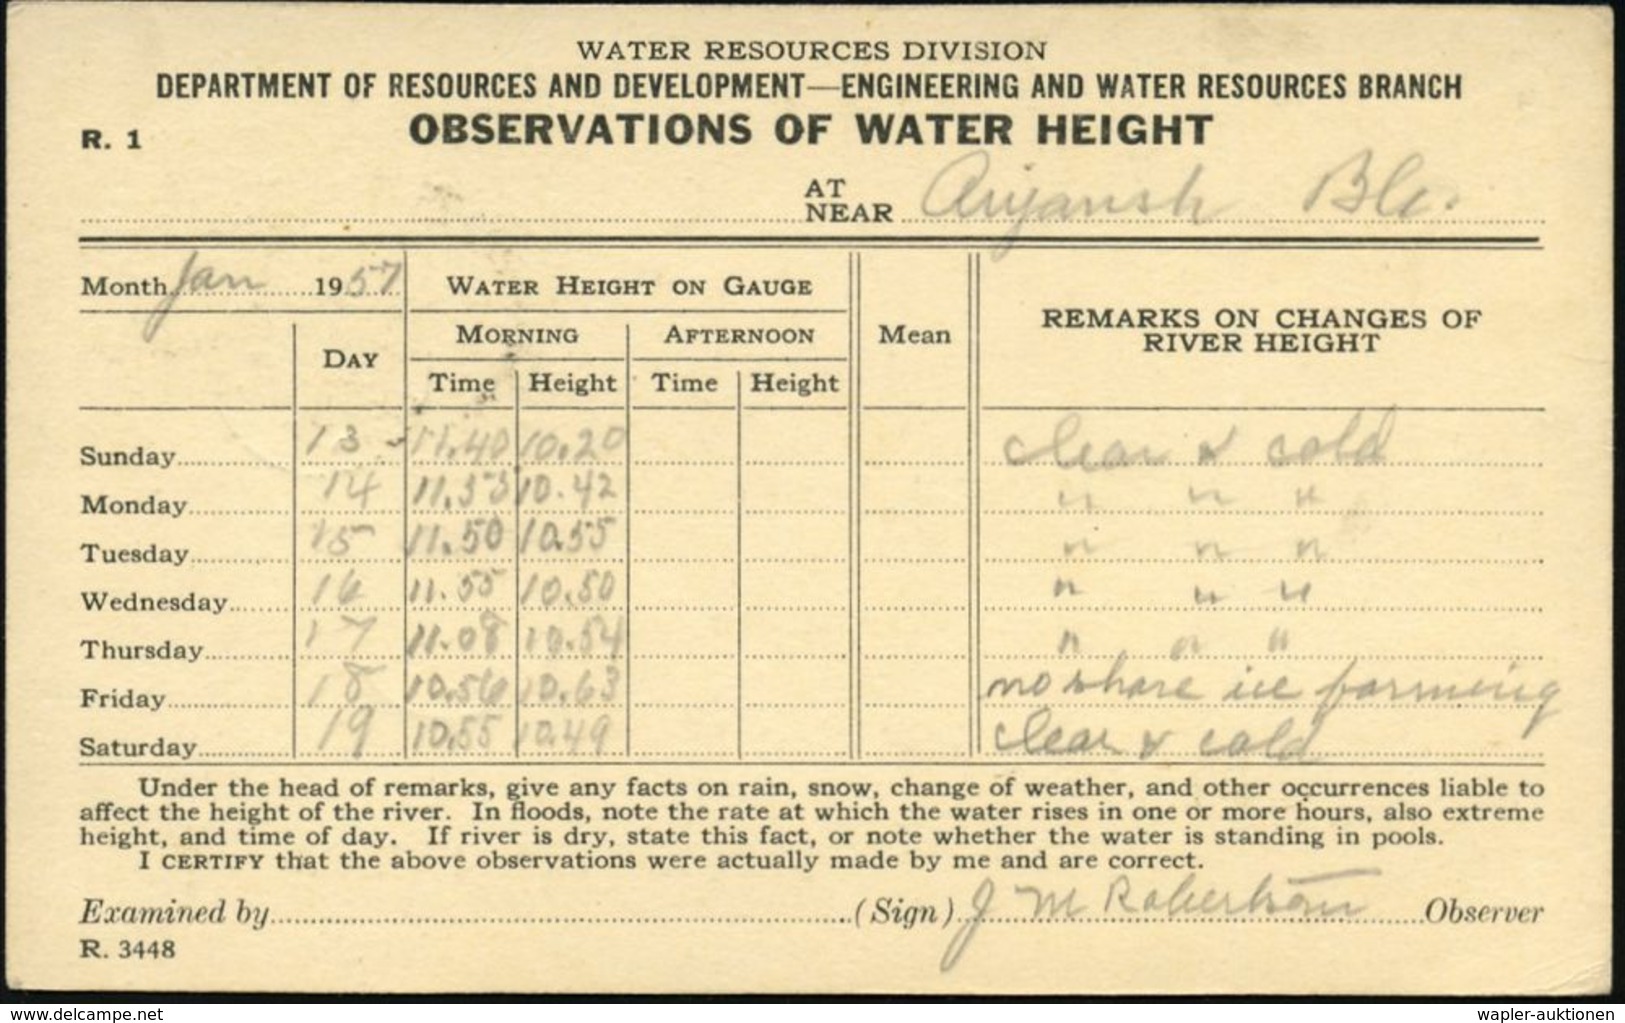 WATER RESOURCES DIVISION
DEPARTMENT OF RESOURCES AND DEVELOPMENT—ENGINEERING AND WATER RESOURCES BRANCH
R. 1 OBSERVATIONS OF WATER HEIGHT
AT
NEAR Aiyansh B.C.
Month Jan 1957 WATER HEIGHT ON GAUGE
DAY MORNING AFTERNOON Mean REMARKS ON CHANGES OF RIVER HEIGHT
Time Height Time Height
Sunday 13 11.40 10.20 clear & cold
Monday 14 11.33 10.42 " " "
Tuesday 15 11.50 10.55 " " "
Wednesday 16 11.55 10.50 " " "
Thursday 17 11.08 10.54 " " "
Friday 18 10.56 10.63 no shore ice forming
Saturday 19 10.55 10.49 clear & cold
Under the head of remarks, give any facts on rain, snow, change of weather, and other occurrences liable to
affect the height of the river. In floods, note the rate at which the water rises in one or more hours, also extreme
height, and time of day. If river is dry, state this fact, or note whether the water is standing in pools.
I CERTIFY that the above observations were actually made by me and are correct.
Examined by (Sign) J M Robertson Observer
R. 3448
www.delcampe.net wapler-auktionen